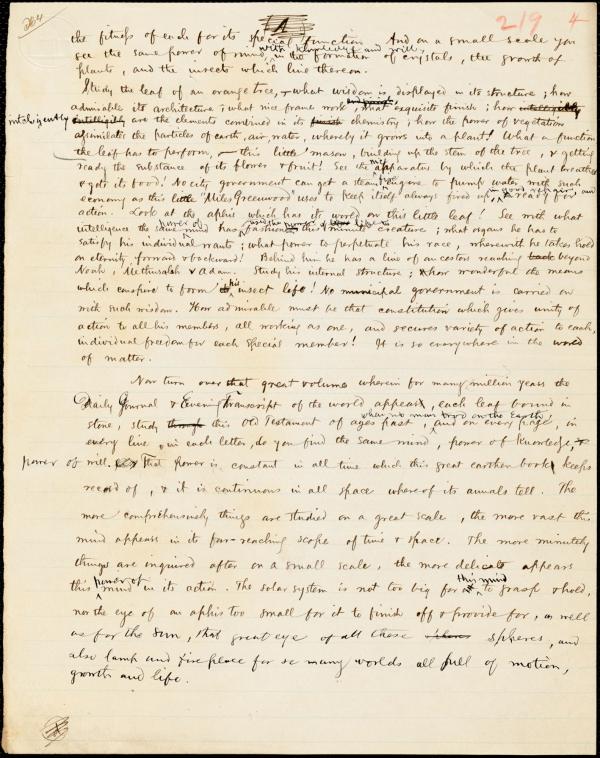 264
A
219 4
the fitness of each for its special function. And on a small scale you
see the same power of mind, with knowledge and will, in the formation of crystals, the growth of
plants, and the insects which live thereon.
Study the leaf of an orange tree, what wisdom is displayed in its structure; how
admirable its architecture; what nice frame work, what exquisite finish; how intelligently
intelligently are the elements combined in its chemistry; how the power of vegetation
assimilates the particles of earth, air, water, whereby it grows into a plant! What a function
the leaf has to perform, — this little mason, building up the stem of the tree, & getting
ready the substance of its flower & fruit! See the apparatus by which the plant breathes
& gets its food! No city government can get a steam fire engine to pump water with such
economy as this little "Miles Greenwood" uses to keep itself always fired up, in good repair, and ready for
action. Look at the aphis which has its world on this little leaf! See with what
intelligence the same power of mind has fashioned this minute creature; what organs he has to
satisfy his individual wants; what power to perpetuate his race, wherewith he takes hold
on eternity, forward & backward! Behind him he has a line of ancestors reaching back beyond
Noah, Methusalah & Adam. Study his internal structure; & how wonderful the means
which conspire to form this insect life! No municipal government is carried on
with such wisdom. How admirable must be that constitution which gives unity of
action to all his members, all working as one, and secures variety of action to each,
individual freedom for each special member! It is so everywhere in the world
of matter.
Now turn over that great volume wherein for many million years the
Daily Journal & Evening Transcript of the world appears, each leaf bound in
stone, study this Old Testament of ages past, when no man trod on the Earth, and on every page, in
every line, in each letter, do you find the same mind, power of knowledge, &
power of will. That Power is constant in all time which this great earthen book keeps
record of, & it is continuous in all space whereof its annals tell. The
more comprehensively things are studied on a great scale, the more vast this
mind appears in its far-reaching scope of time & space. The more minutely
things are inquired after on a small scale, the more delicate appears
this power of mind in its action. The solar system is not too big for this mind to grasp & hold,
nor the eye of an aphis too small for it to finish off & provide for, as well
as for the Sun, that great eye of all these spheres, and
also lamp and fireplace for so many worlds all full of motion,
growth and life.